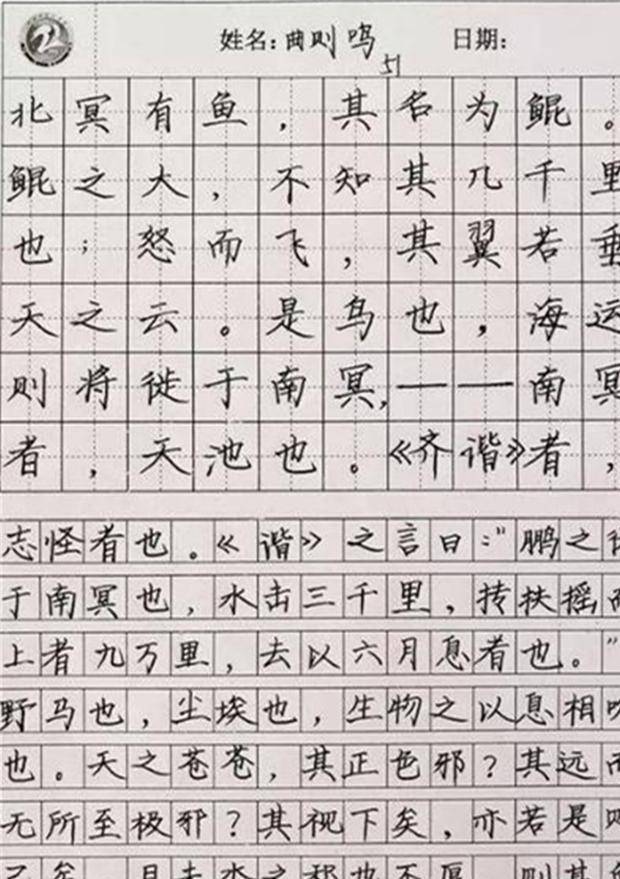 姓名: 曲则鸣 日期:
51
北冥有鱼，其名为鲲。
鲲之大，不知其几千里
也；怒而飞，其翼若垂
天之云。是鸟也，海运
则将徙于南冥,——南冥
者，天池也。《齐谐》者，
志怪者也。《谐》之言曰："鹏之徙
于南冥也，水击三千里，抟扶摇而
上者九万里，去以六月息者也。"
野马也，尘埃也，生物之以息相吹
也。天之苍苍，其正色邪？其远而
无所至极邪？其视下矣，亦若是则